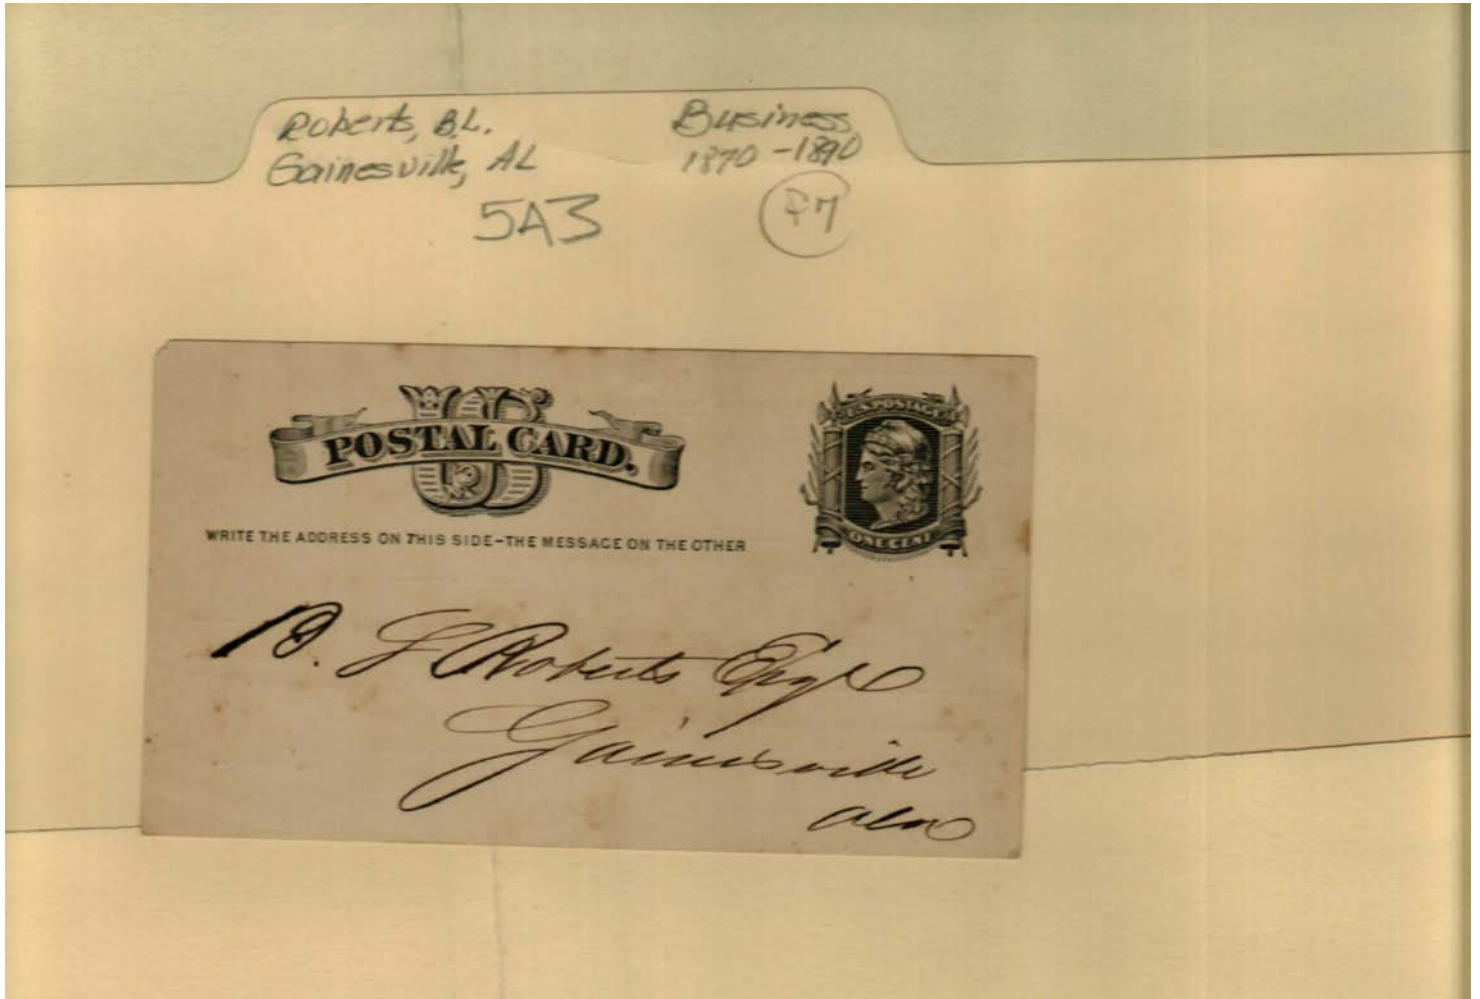 Roberts, B.L.
Gainesville, AL
Business
1870-1890
5A3
F7
US
POSTAL CARD.
U.S. POSTAGE
ONE CENT
WRITE THE ADDRESS ON THIS SIDE-THE MESSAGE ON THE OTHER
B. L Roberts Esqr
Gainesville
Ala